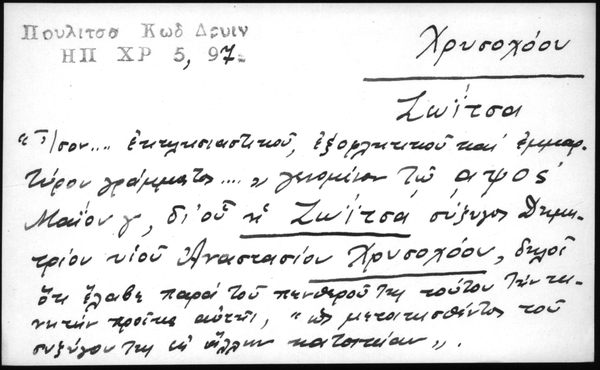 Πουλιτσα Κωδ Δρυιν
ΗΠ ΧΡ 5, 97-
Χρυσοχόου
Ζωΐτσα
"Ἴσον.... ἐκκλησιαστικοῦ, ἐξοφλητικοῦ καί ἐμμαρ-
τύρου γράμματος....", γενομένου τῷ ͵αψοϛʹ
Μαΐου γ, δι' οὗ ἡ Ζωΐτσα σύζυγος Δημη-
τρίου υἱοῦ Ἀναστασίου Χρυσοχόου, δηλοῖ
ὅτι ἔλαβε παρά τοῦ πενθεροῦ της τούτου τήν
προῖκα αὐτῆς, "ὡς μετοικισθέντος τοῦ
συζύγου της εἰς ἄλλην κατοικίαν".